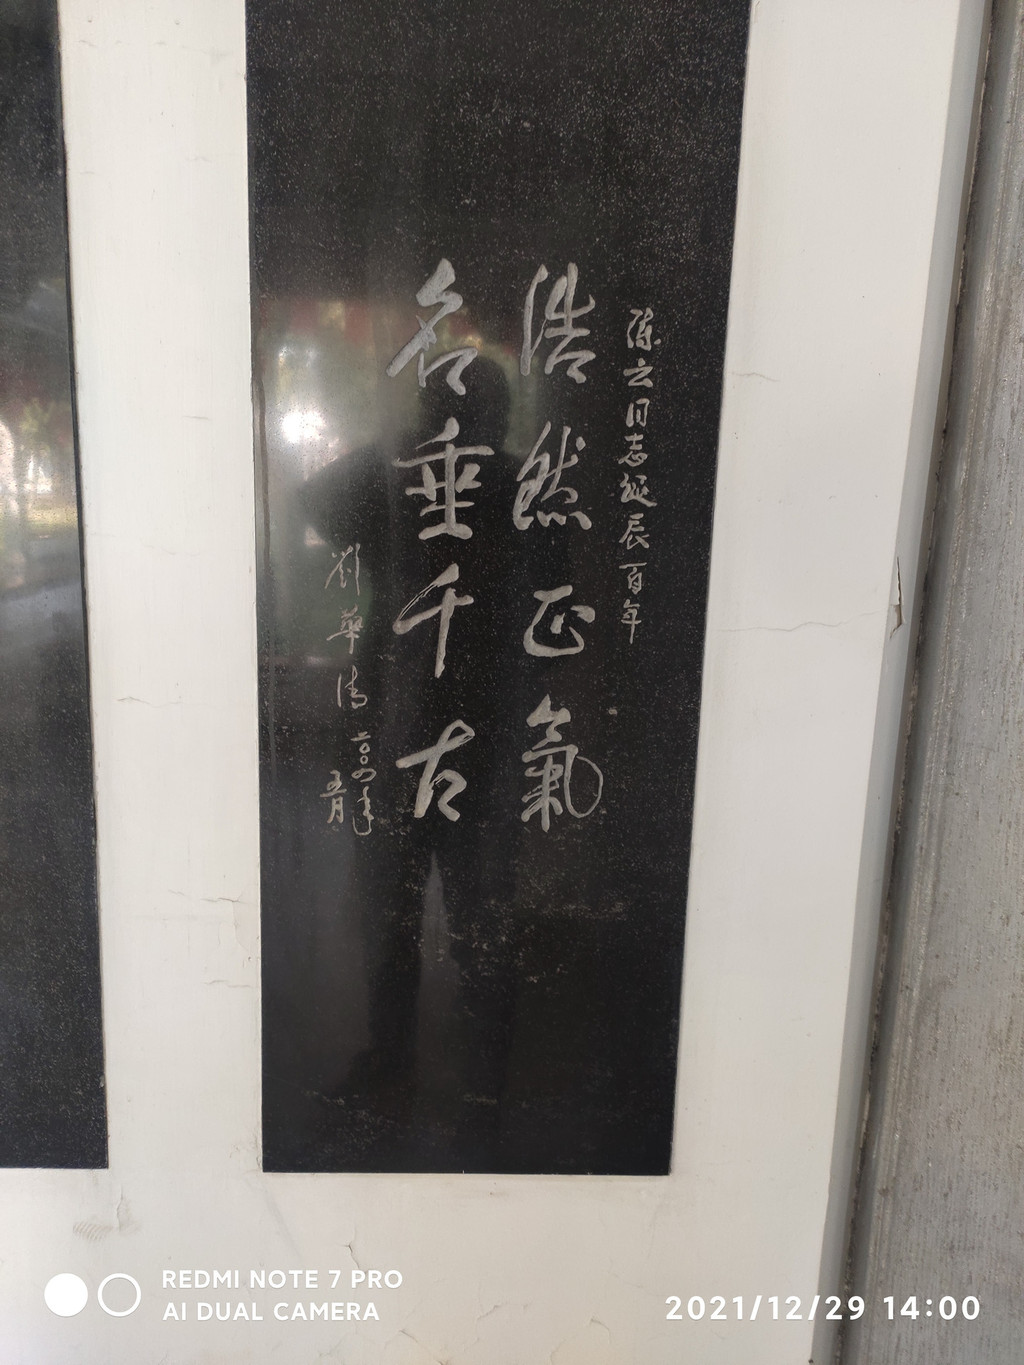 陈云同志诞辰百年
浩然正氣
名垂千古
劉華清
二〇〇四年
五月
REDMI NOTE 7 PRO
AI DUAL CAMERA
2021/12/29 14:00